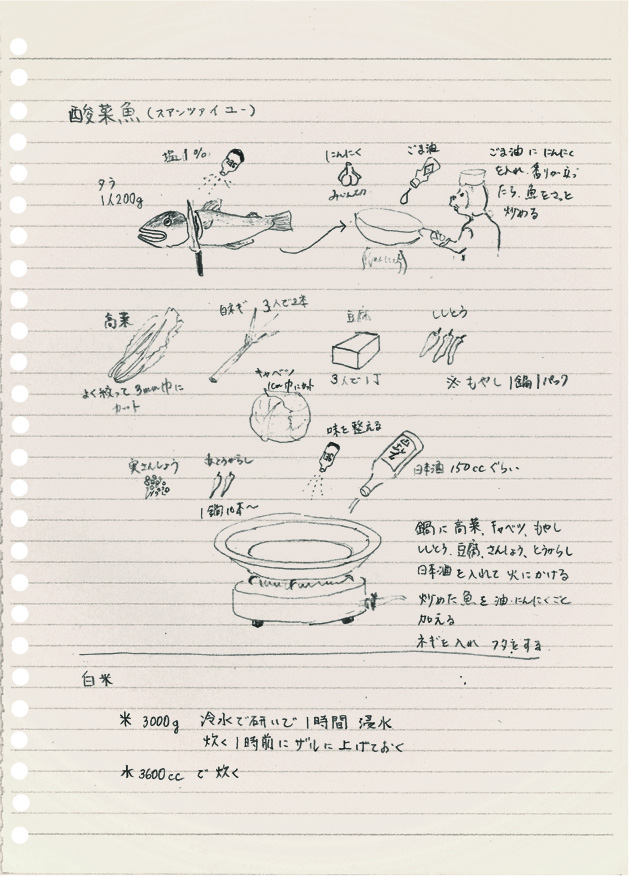 酸菜魚(スアンツァイユー)
塩1%
タラ
1人200g
にんにく
みじん切り
ごま油
ごま油に にんにく
を入れ、香りが立っ
たら、魚をさっと
炒める
高菜
よく絞って 3mm巾に
カット
白ネギ 3人で2本
キャベツ
1cm巾にカット
豆腐
3人で1丁
ししとう
※ もやし 1鍋1パック
実さんしょう
赤とうがらし
1鍋10本〜
味を整える
塩
日本酒 150ccぐらい
鍋に 高菜、キャベツ、もやし
ししとう、豆腐、さんしょう、とうがらし
日本酒を入れて 火にかける
炒めた魚を油・にんにくごと
加える
ネギを入れ フタをする
白米
米 3000g 冷水で研いで 1時間 浸水
炊く1時前に ザルに上げておく
水 3600cc で 炊く